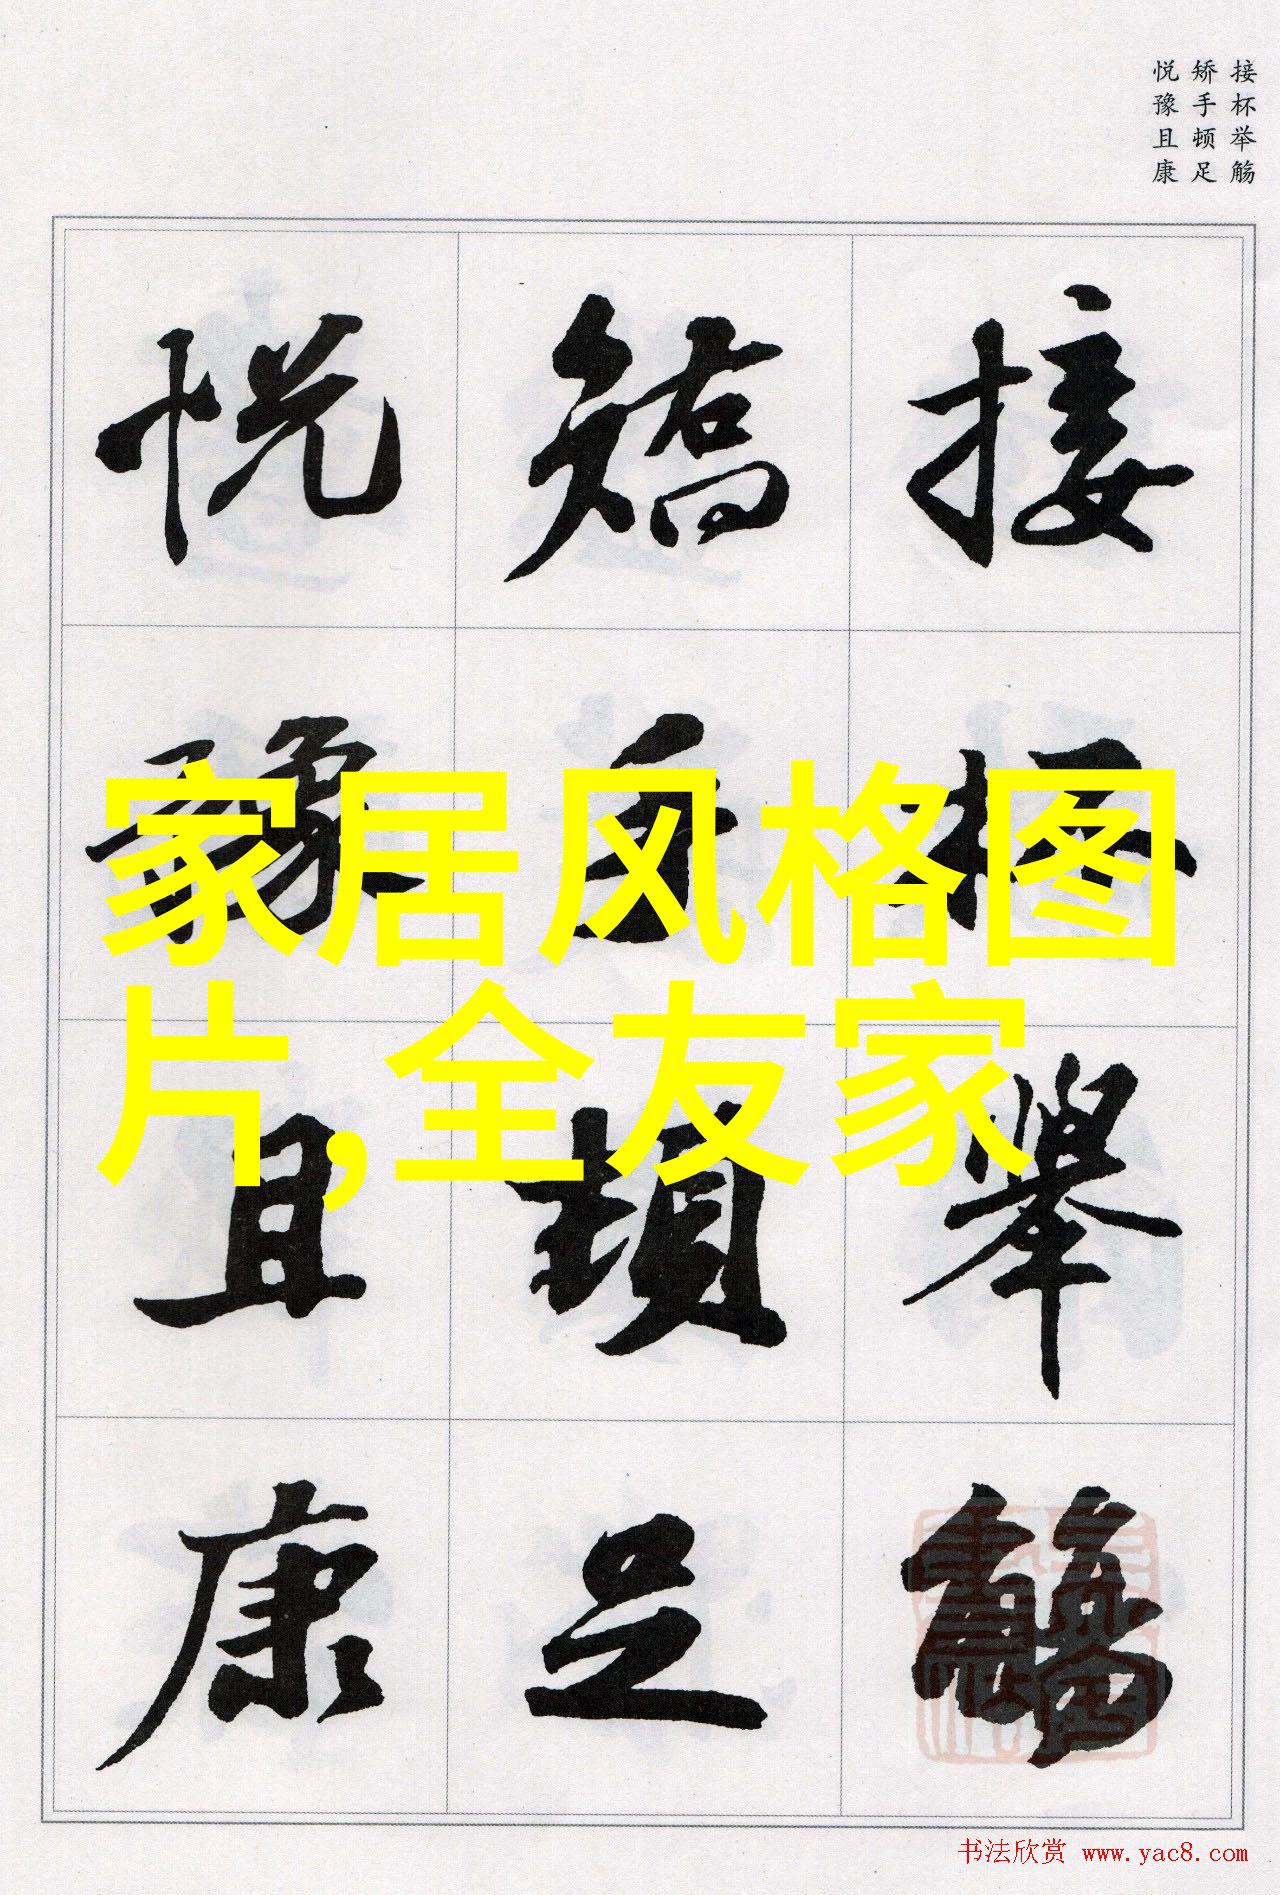 接杯举觞
矫手顿足
悦豫且康
接杯舉觴
矯手頓足
悦豫且康
家居风格图
片,全友家
书法欣赏 www.yac8.com